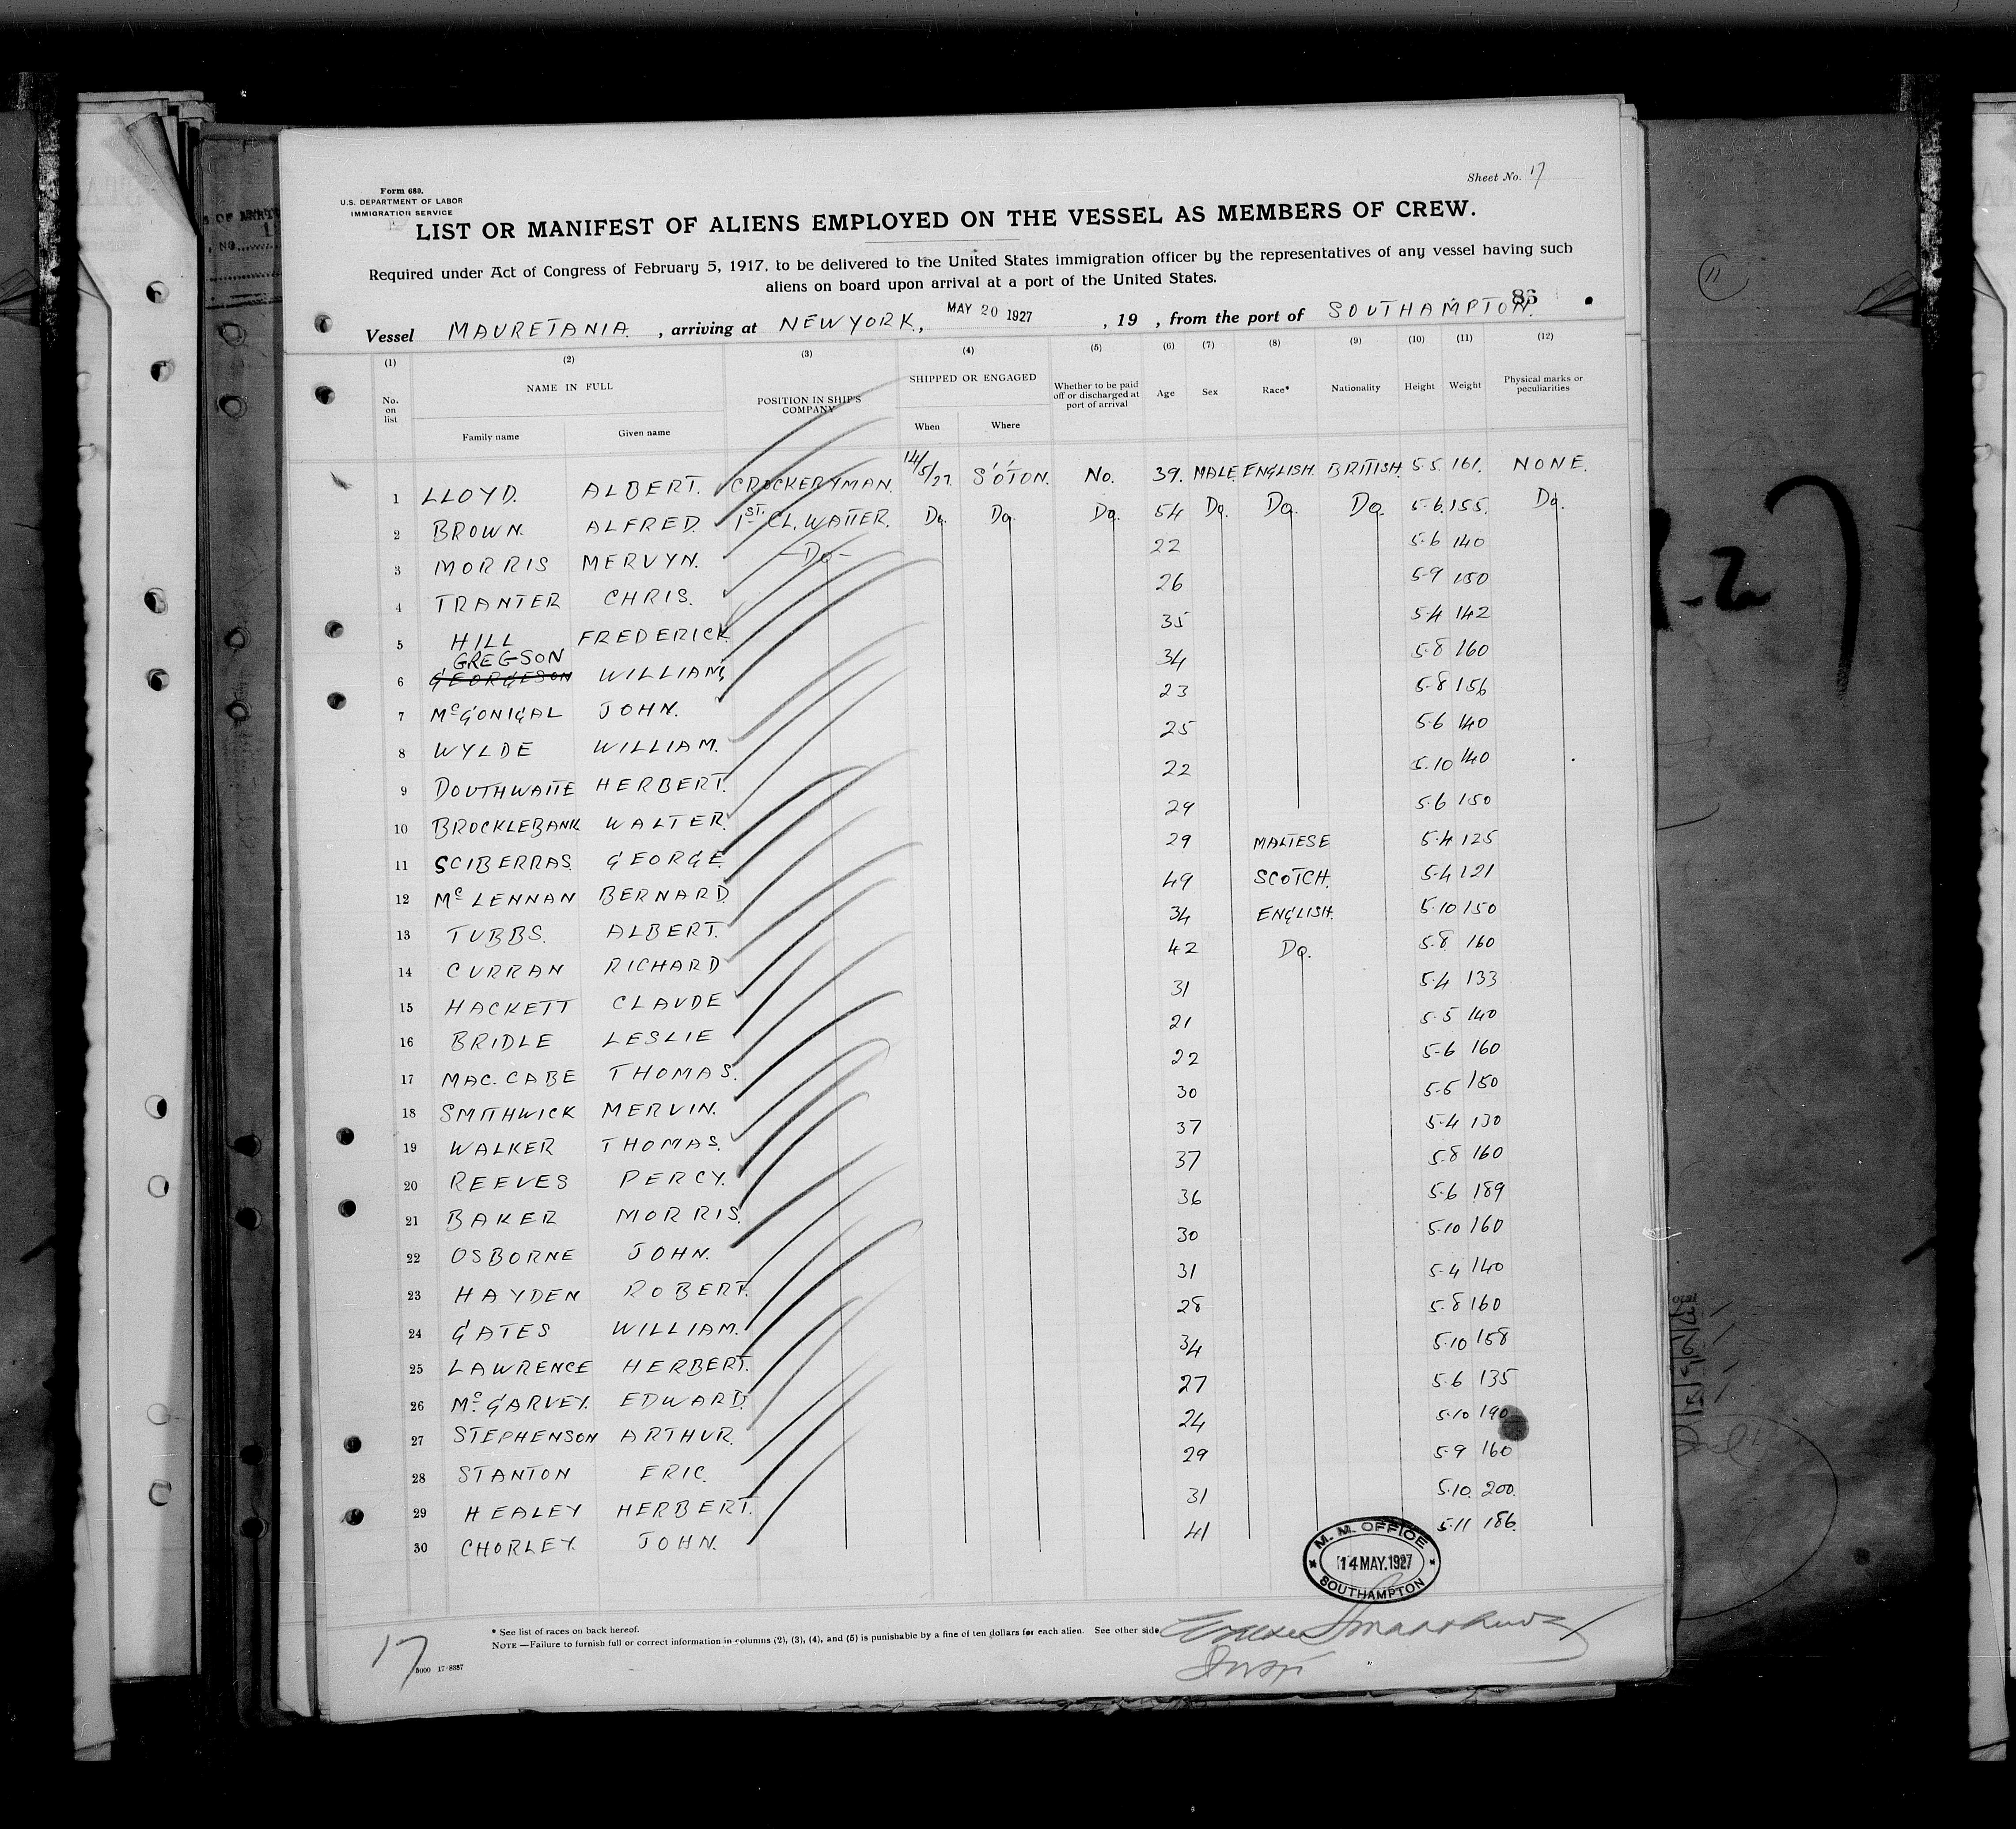 Sheet No. 17
Form 689.
U.S. DEPARTMENT OF LABOR
IMMIGRATION SERVICE
LIST OR MANIFEST OF ALIENS EMPLOYED ON THE VESSEL AS MEMBERS OF CREW.
Required under Act of Congress of February 5, 1917, to be delivered to the United States immigration officer by the representatives of any vessel having such
aliens on board upon arrival at a port of the United States.
11
86
Vessel MAURETANIA, arriving at NEW YORK, MAY 20 1927, 19 , from the port of SOUTHAMPTON.
(1) (2) (3) (4) (5) (6) (7) (8) (9) (10) (11) (12)
No. on list NAME IN FULL POSITION IN SHIP'S COMPANY SHIPPED OR ENGAGED Whether to be paid off or discharged at port of arrival Age Sex Race* Nationality Height Weight Physical marks or peculiarities
Family name Given name When Where
1 LLOYD. ALBERT. CROCKERYMAN. 14/5/27. S'OTON. No. 39. MALE. ENGLISH. BRITISH. 5-5. 161. NONE.
2 BROWN. ALFRED. 1ST. CL. WAITER. Do. Do. Do. 54 Do. Do. Do. 5-6. 155. Do.
3 MORRIS MERVYN. -Do- 22 5-6 140
4 TRANTER CHRIS. 26 5-9 150
5 HILL FREDERICK. 35 5-4 142
GREGSON
6 GEORGESON WILLIAM. 34 5-8 160
7 McGONIGAL JOHN. 23 5-8 156
8 WYLDE WILLIAM. 25 5-6 140
9 DOUTHWAITE HERBERT. 22 5-10 140
10 BROCKLEBANK WALTER. 29 5-6 150
11 SCIBERRAS. GEORGE. 29 MALTESE 5-4 125
12 McLENNAN BERNARD. 49 SCOTCH. 5-4 121
13 TUBBS. ALBERT. 34 ENGLISH. 5-10 150
14 CURRAN RICHARD 42 Do. 5-8 160
15 HACKETT CLAUDE 31 5-4 133
16 BRIDLE LESLIE 21 5-5 140
17 MAC. CABE THOMAS. 22 5-6 160
18 SMITHWICK MERVIN. 30 5-5 150
19 WALKER THOMAS. 37 5-4 130
20 REEVES PERCY. 37 5-8 160
21 BAKER MORRIS. 36 5-6 189
22 OSBORNE JOHN. 30 5-10 160
23 HAYDEN ROBERT. 31 5-4 140
24 GATES WILLIAM. 28 5-8 160
25 LAWRENCE HERBERT. 34 5-10 158
26 McGARVEY. EDWARD. 27 5-6 135
27 STEPHENSON ARTHUR. 24 5-10 190
28 STANTON ERIC. 29 5-9 160
29 HEALEY HERBERT. 31 5-10. 200.
30 CHORLEY. JOHN. 41 5-11 186.
M. M. OFFICE
14 MAY. 1927
SOUTHAMPTON
* See list of races on back hereof.
NOTE—Failure to furnish full or correct information in columns (2), (3), (4), and (5) is punishable by a fine of ten dollars for each alien. See other side.
17
5000 17-8387